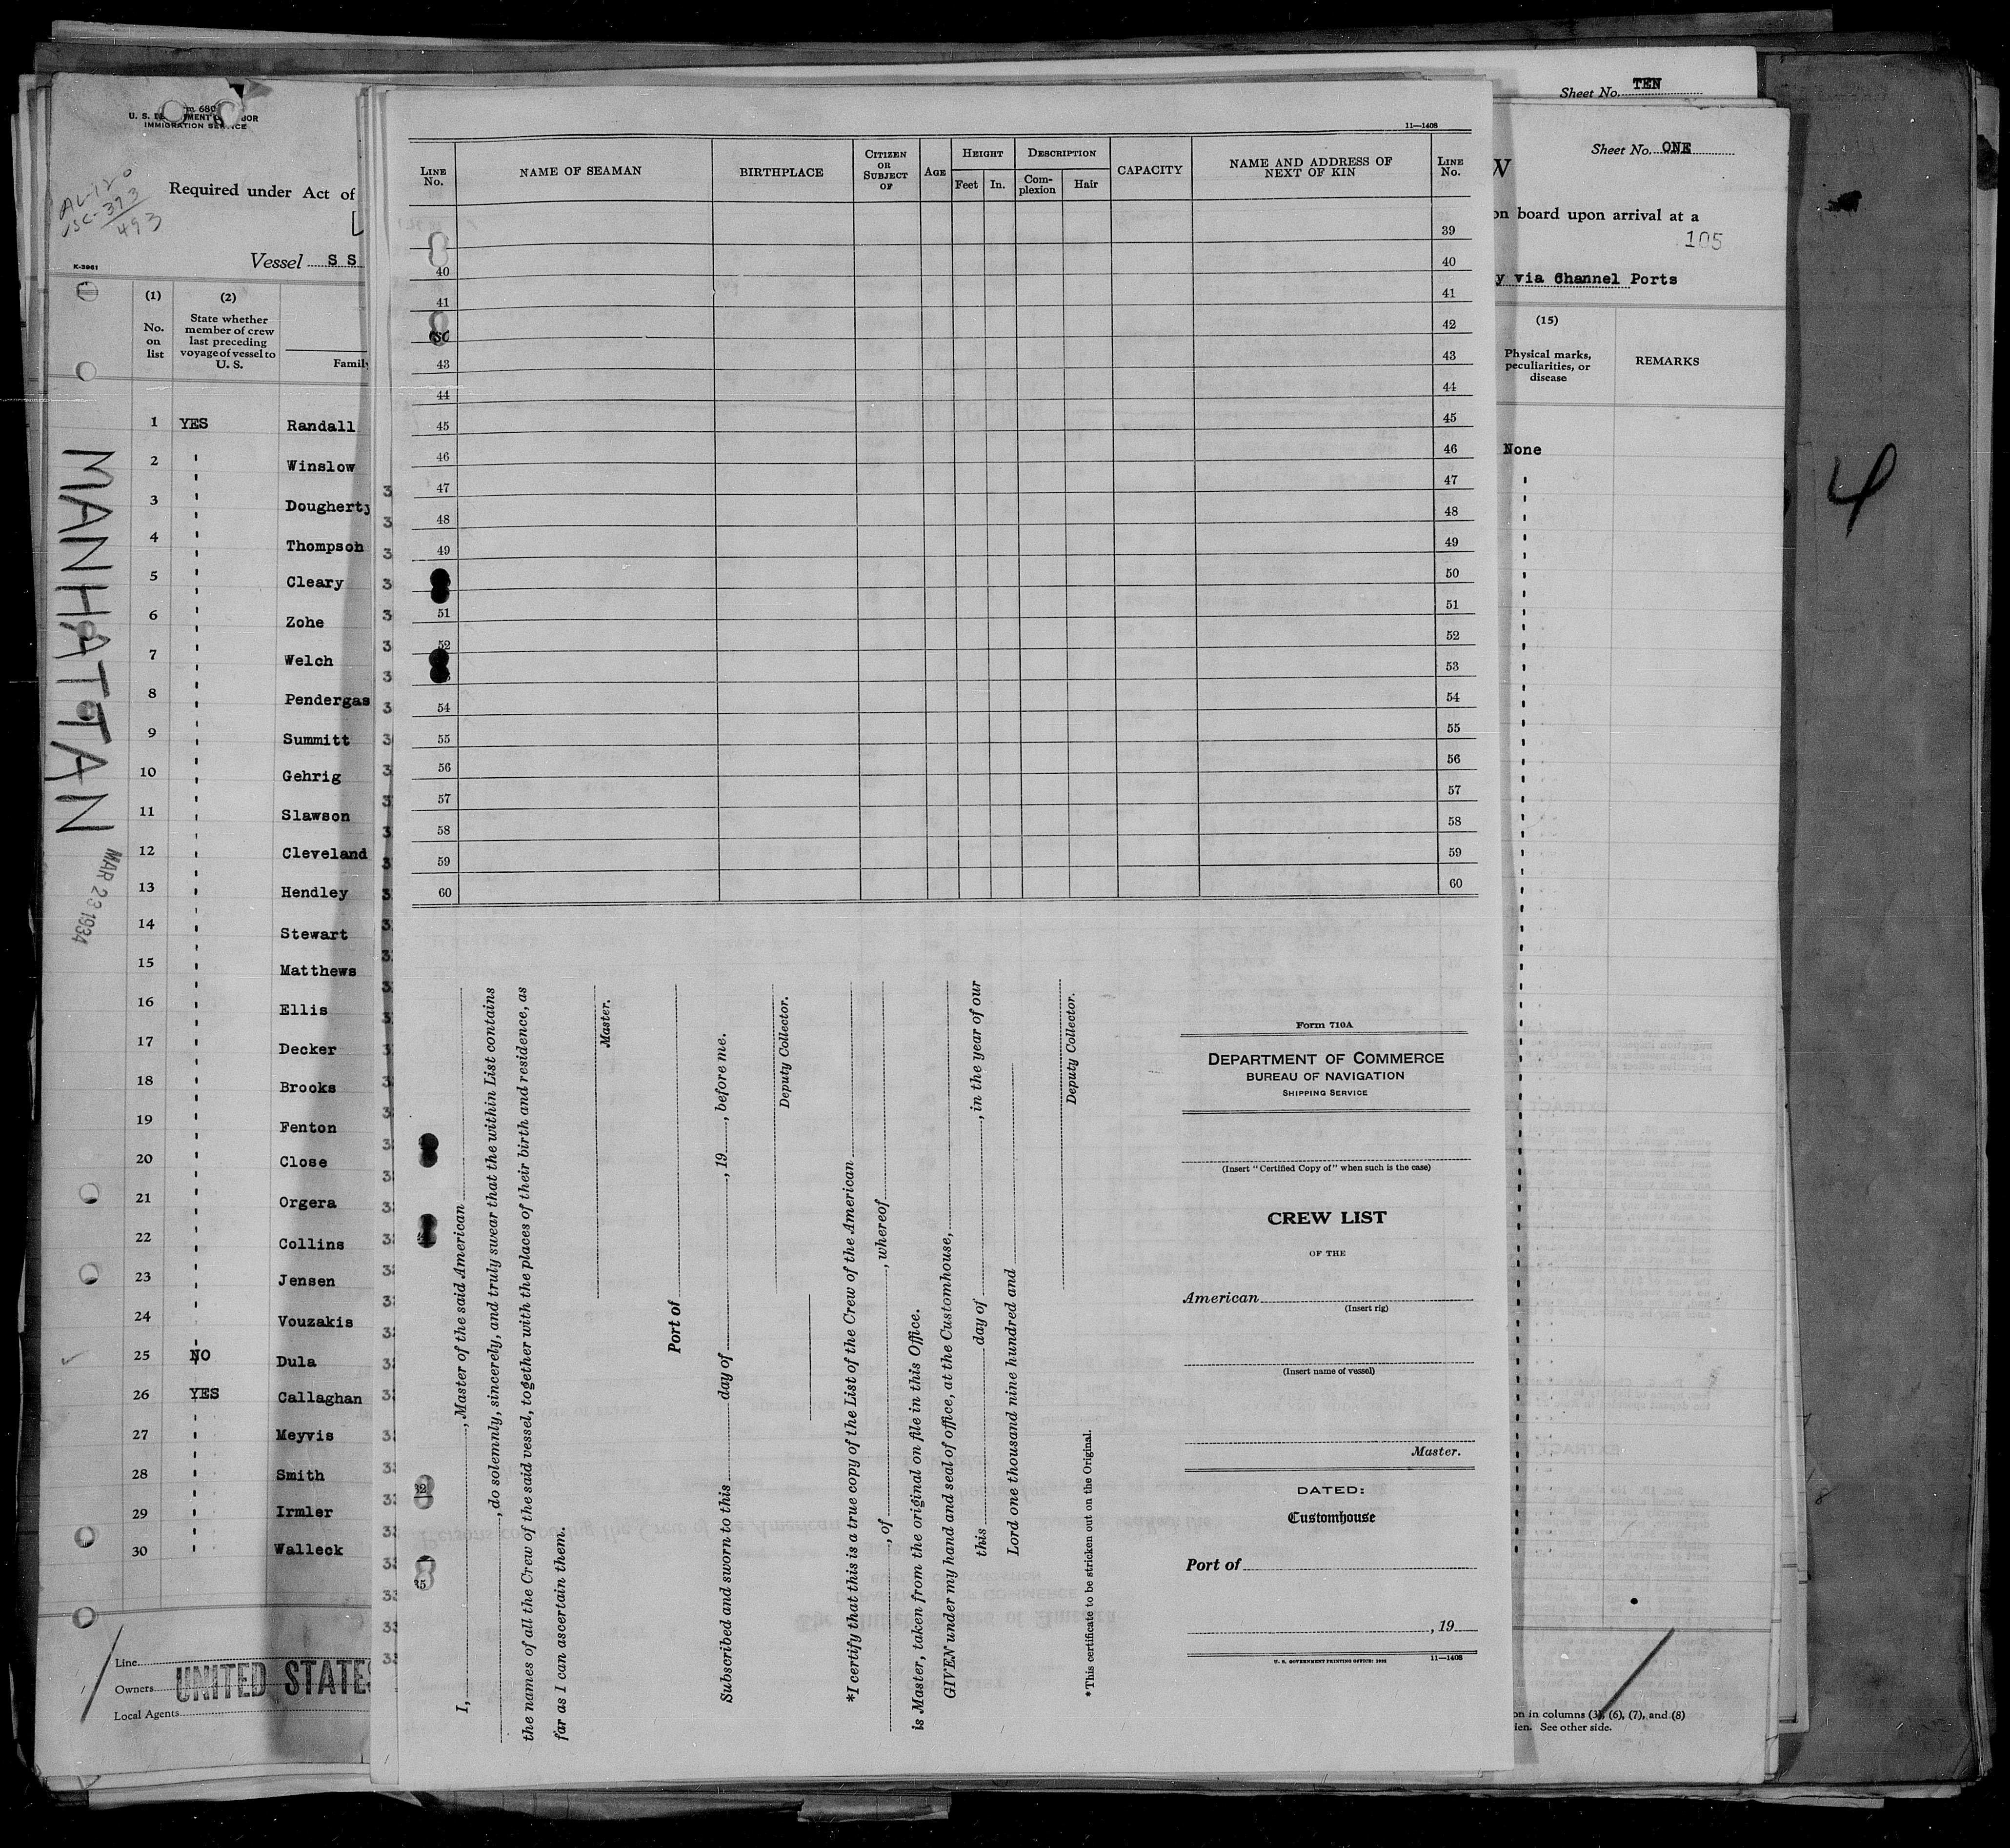 Sheet No. TEN
m 680
U. S. DEPARTMENT OF LABOR
IMMIGRATION SERVICE
AL-120
SC-373
493
Required under Act of
Vessel SS
K-3961
(1)
No.
on
list
(2)
State whether
member of crew
last preceding
voyage of vessel to
U. S.
Family
1 YES Randall
2 " Winslow
3 " Dougherty
4 " Thompson
5 " Cleary
6 " Zohe
7 " Welch
8 " Pendergas
9 " Summitt
10 " Gehrig
11 " Slawson
12 " Cleveland
13 " Hendley
14 " Stewart
15 " Matthews
16 " Ellis
17 " Decker
18 " Brooks
19 " Fenton
20 " Close
21 " Orgera
22 " Collins
23 " Jensen
24 " Vouzakis
25 NO Dula
26 YES Callaghan
27 " Meyvis
28 " Smith
29 " Irmler
30 " Walleck
MANHATTAN
MAR 23 1934
Line
Owners UNITED STATES
Local Agents
11—1408
LINE No.
NAME OF SEAMAN
BIRTHPLACE
CITIZEN OR SUBJECT OF
AGE
HEIGHT
Feet
In.
DESCRIPTION
Complexion
Hair
CAPACITY
NAME AND ADDRESS OF NEXT OF KIN
LINE No.
39
40 40
41 41
42
43 43
44 44
45 45
46 46
47 47
48 48
49 49
50
51 51
52 52
53
54 54
55 55
56 56
57 57
58 58
59 59
60 60
I, , Master of the said American
, do solemnly, sincerely, and truly swear that the within List contains
the names of all the Crew of the said vessel, together with the places of their birth and residence, as
far as I can ascertain them.
Master.
Port of
Subscribed and sworn to this day of , 19 , before me.
Deputy Collector.
*I certify that this is a true copy of the List of the Crew of the American
, of , whereof
is Master, taken from the original on file in this Office.
GIVEN under my hand and seal of office, at the Customhouse,
this day of , in the year of our
Lord one thousand nine hundred and
Deputy Collector.
*This certificate to be stricken out on the Original.
Form 710A
DEPARTMENT OF COMMERCE
BUREAU OF NAVIGATION
SHIPPING SERVICE
(Insert "Certified Copy of" when such is the case)
CREW LIST
OF THE
American
(Insert rig)
(Insert name of vessel)
Master.
DATED:
Customhouse
Port of
, 19
U. S. GOVERNMENT PRINTING OFFICE: 1932 11—1408
Sheet No. ONE
W
on board upon arrival at a
105
y via Channel Ports
(15)
Physical marks,
peculiarities, or
disease
REMARKS
None
on in columns (3), (6), (7), and (8)
ien. See other side.
4